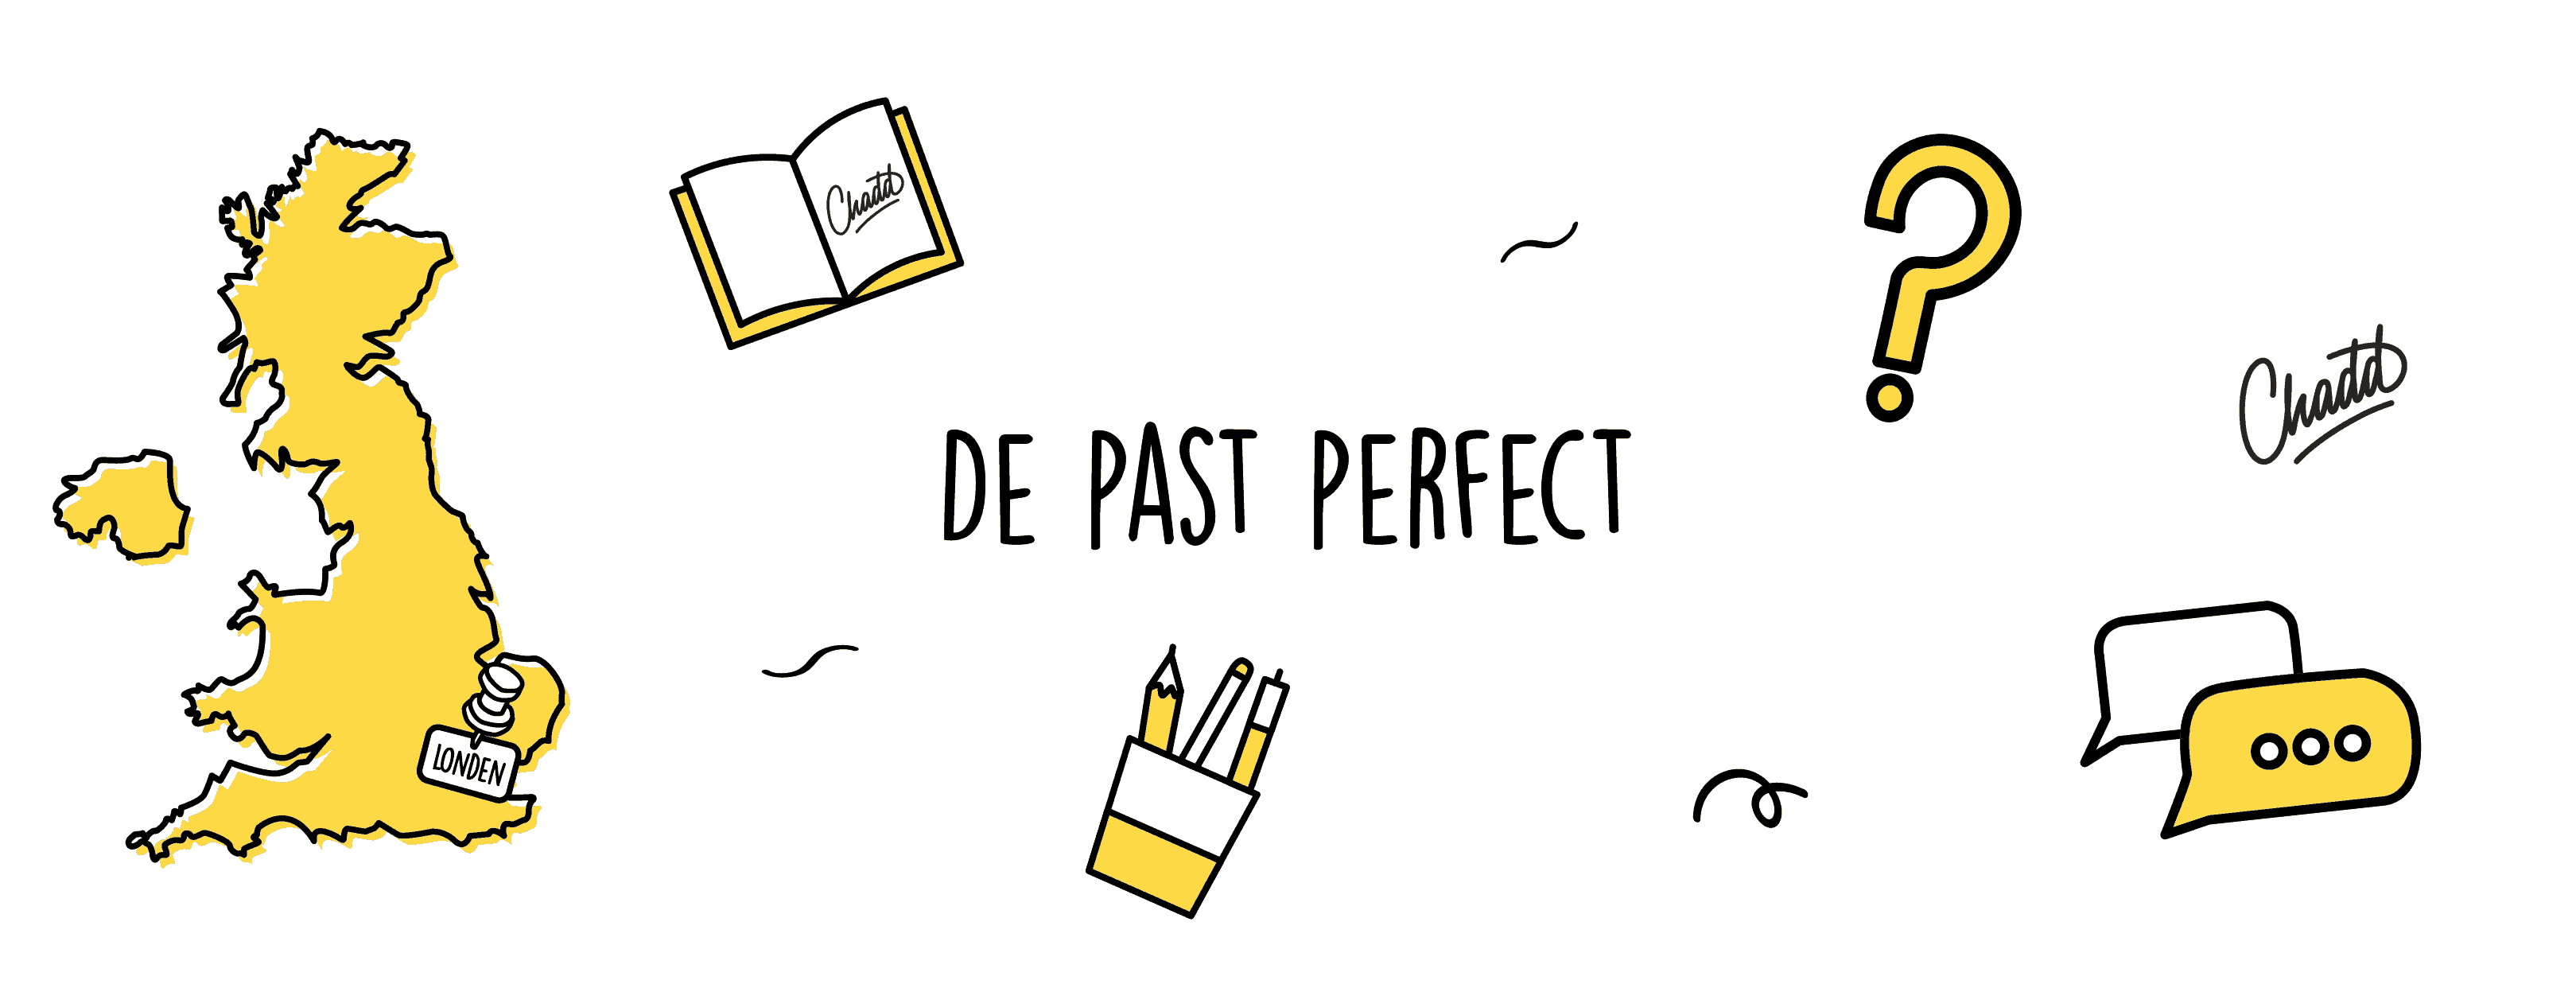 Chadd
Chadd
DE PAST PERFECT
LONDEN